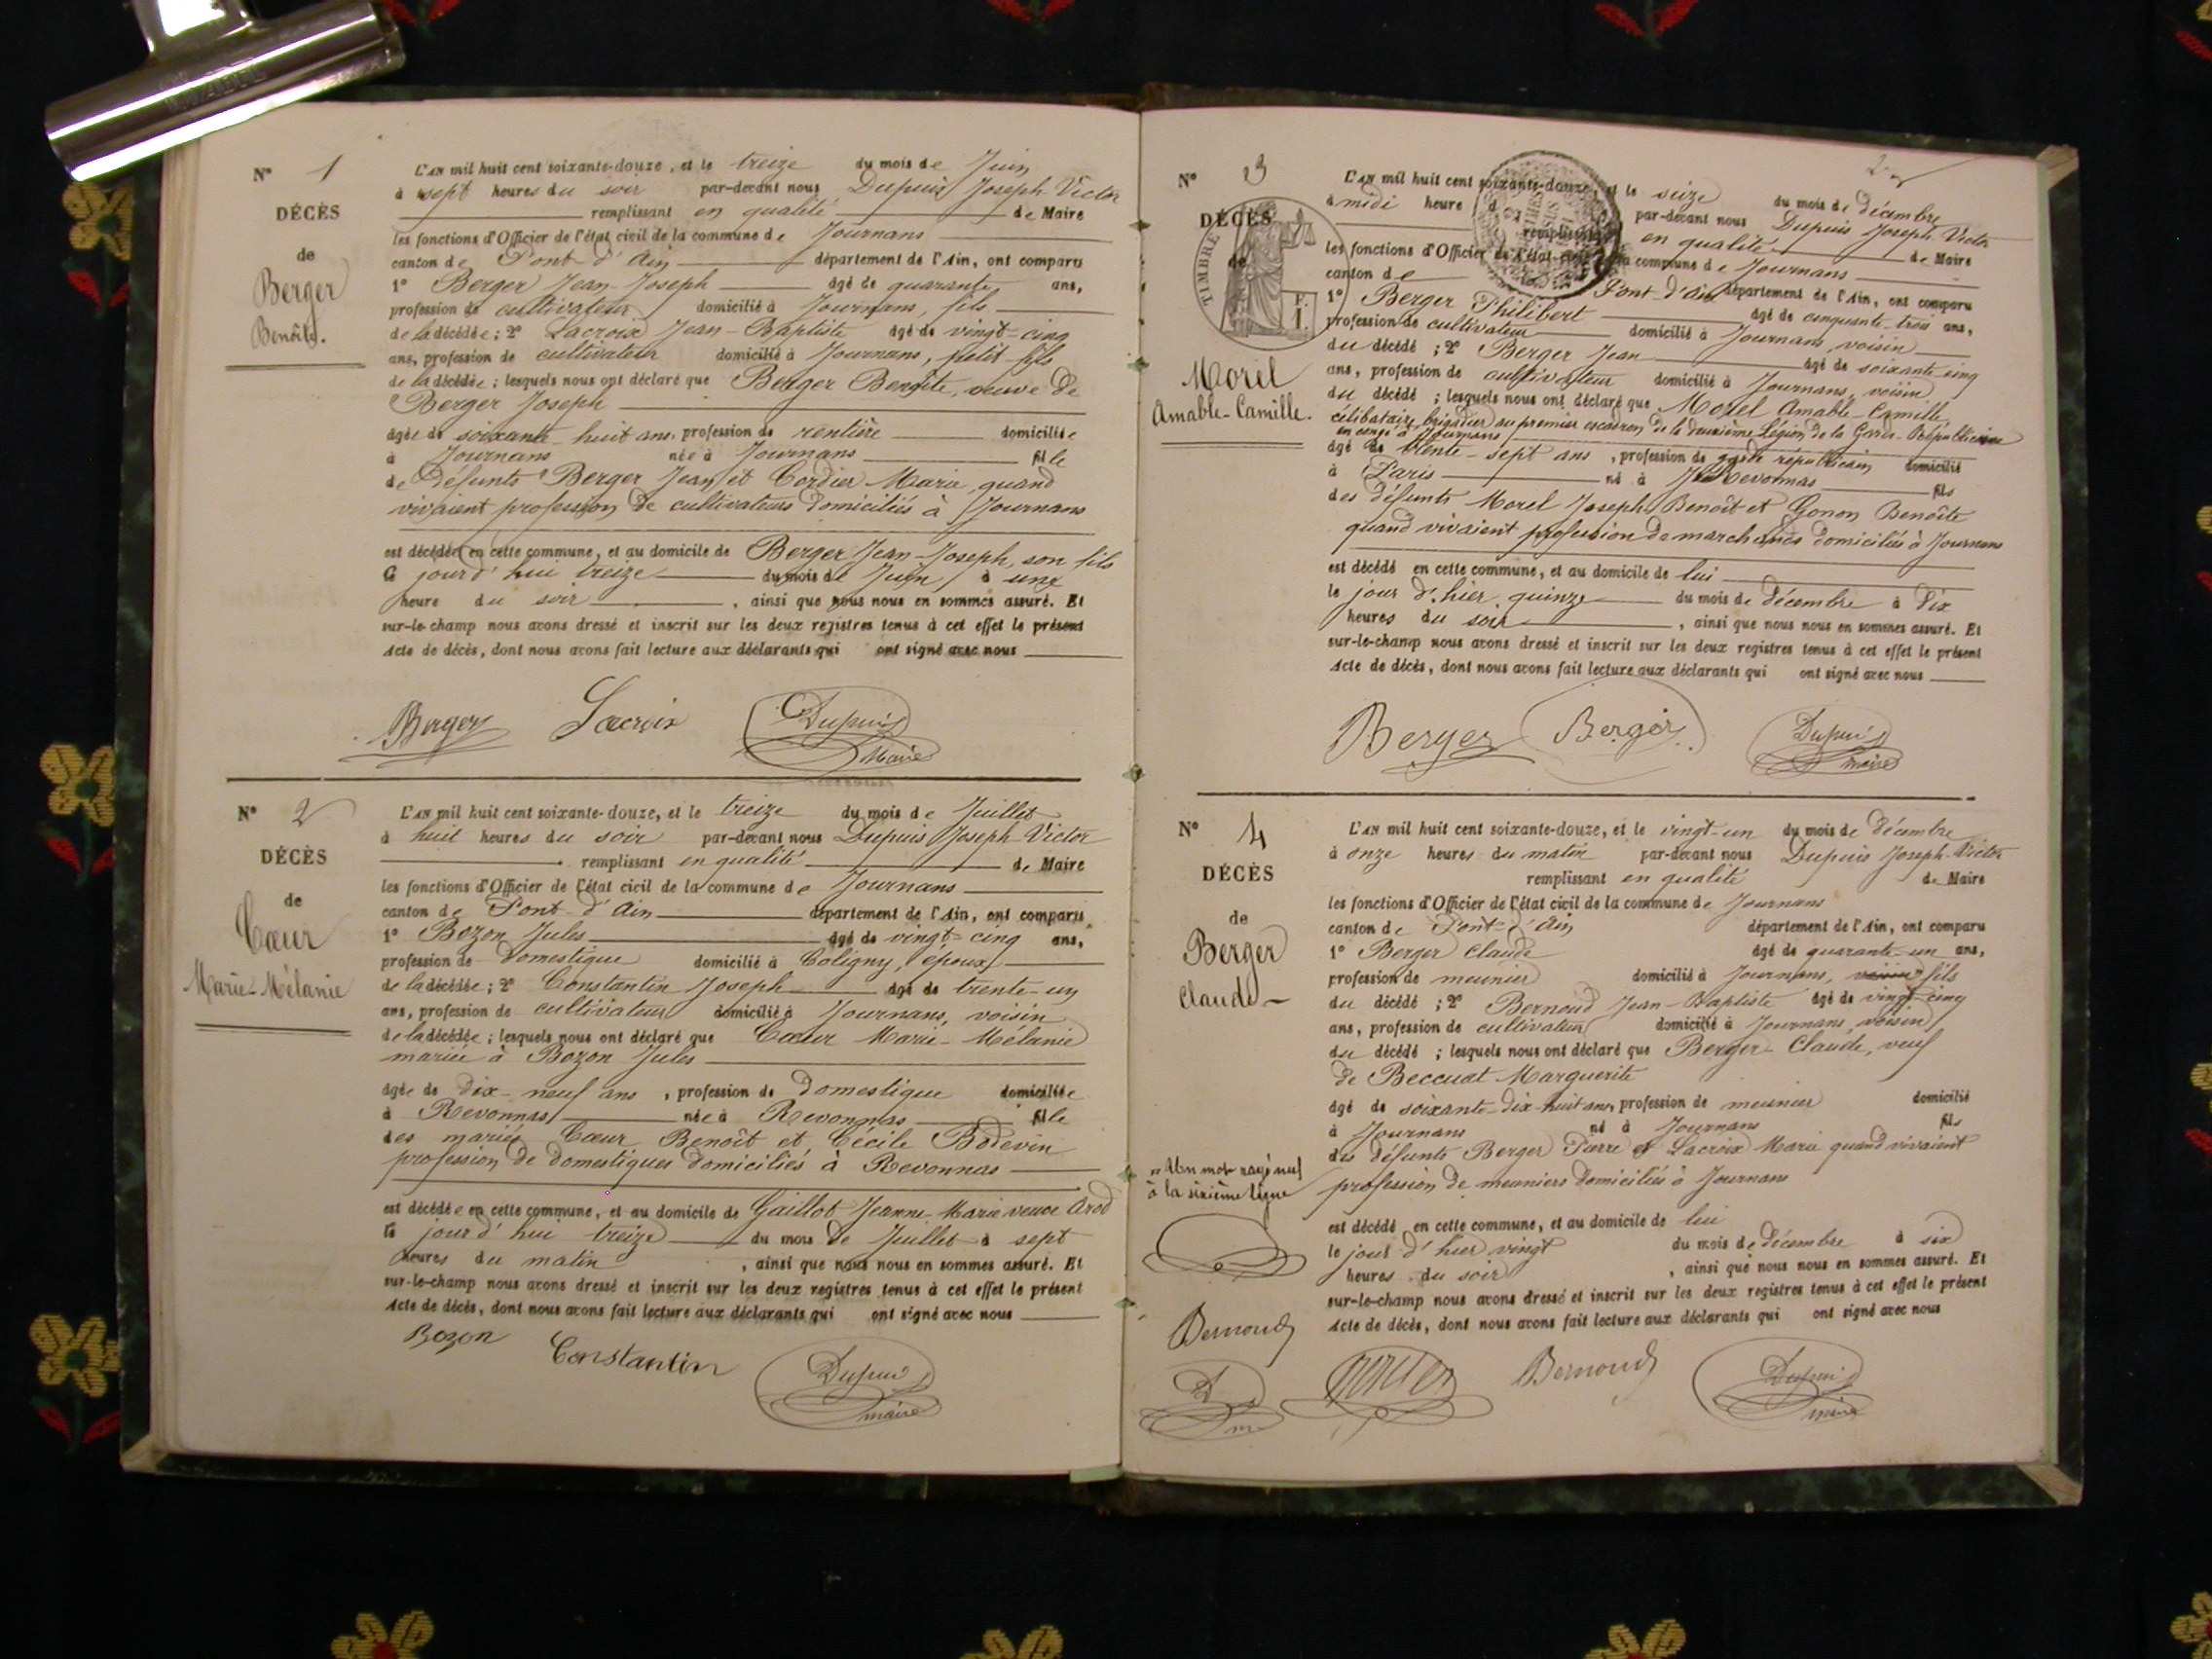 N° 1
DÉCÈS
de
Berger
Benoîte.
L'AN mil huit cent soixante-douze, et le treize du mois de Juin
à sept heures du soir par-devant nous Dupuis Joseph Victor
remplissant en qualité de Maire
les fonctions d'Officier de l'état civil de la commune de Journans
canton de Pont-d'Ain département de l'Ain, ont comparu
1° Berger Jean-Joseph âgé de quarante ans,
profession de cultivateur domicilié à Journans, fils
de la décédée ; 2° Lacroix Jean-Baptiste âgé de vingt-cinq
ans, profession de cultivateur domicilié à Journans, petit-fils
de la décédée ; lesquels nous ont déclaré que Berger Benoîte, veuve de
Berger Joseph
âgée de soixante-huit ans, profession de rentière domiciliée
à Journans née à Journans fille
de défunts Berger Jean et Cordier Marie, quand
vivaient profession de cultivateurs domiciliés à Journans
est décédée en cette commune, et au domicile de Berger Jean-Joseph, son fils
le jour d'hui treize du mois de Juin à une
heure du soir, ainsi que nous nous en sommes assuré. Et
sur-le-champ nous avons dressé et inscrit sur les deux registres tenus à cet effet le présent
Acte de décès, dont nous avons fait lecture aux déclarants qui ont signé avec nous
Berger Lacroix Dupuis
Maire
N° 2
DÉCÈS
de
Cœur
Marie-Mélanie
L'AN mil huit cent soixante-douze, et le treize du mois de Juillet
à huit heures du soir par-devant nous Dupuis Joseph Victor
remplissant en qualité de Maire
les fonctions d'Officier de l'état civil de la commune de Journans
canton de Pont-d'Ain département de l'Ain, ont comparu
1° Bozon Jules âgé de vingt-cinq ans,
profession de Domestique domicilié à Coligny, époux
de la décédée ; 2° Constantin Joseph âgé de trente-un
ans, profession de cultivateur domicilié à Journans, voisin
de la décédée ; lesquels nous ont déclaré que Cœur Marie-Mélanie
mariée à Bozon Jules
âgée de dix-neuf ans, profession de Domestique domiciliée
à Revonnas née à Revonnas fille
des mariés Cœur Benoît et Cécile Bodevin
profession de domestiques domiciliés à Revonnas
est décédée en cette commune, et au domicile de Gaillot Jeanne-Marie veuve Arod
le jour d'hui treize du mois de Juillet à sept
heures du matin, ainsi que nous nous en sommes assuré. Et
sur-le-champ nous avons dressé et inscrit sur les deux registres tenus à cet effet le présent
Acte de décès, dont nous avons fait lecture aux déclarants qui ont signé avec nous
Bozon Constantin Dupuis
maire
2
N° 3
DÉCÈS
de
TIMBRE
Morel
Amable-Camille.
L'AN mil huit cent soixante-douze, et le seize du mois de décembre
à midi heure par-devant nous Dupuis Joseph Victor
remplissant en qualité de Maire
les fonctions d'Officier de l'état civil de la commune de Journans
canton de Pont-d'Ain département de l'Ain, ont comparu
1° Berger Philibert âgé de cinquante-trois ans,
profession de cultivateur domicilié à Journans, voisin
du décédé ; 2° Berger Jean âgé de soixante-cinq
ans, profession de cultivateur domicilié à Journans, voisin
du décédé ; lesquels nous ont déclaré que Morel Amable-Camille,
célibataire, brigadier au premier escadron de la deuxième Légion de la Garde-Républicaine
en congé à Journans
âgé de trente-sept ans, profession de garde républicain domicilié
à Paris né à Revonnas fils
des défunts Morel Joseph Benoît et Gonon Benoîte
quand vivaient profession de marchands domiciliés à Journans
est décédé en cette commune, et au domicile de lui
le jour d'hier quinze du mois de décembre à dix
heures du soir, ainsi que nous nous en sommes assuré. Et
sur-le-champ nous avons dressé et inscrit sur les deux registres tenus à cet effet le présent
Acte de décès, dont nous avons fait lecture aux déclarants qui ont signé avec nous
Berger Berger Dupuis
maire
N° 4
DÉCÈS
de
Berger
Claude
L'AN mil huit cent soixante-douze, et le vingt-un du mois de décembre
à onze heures du matin par-devant nous Dupuis Joseph Victor
remplissant en qualité de Maire
les fonctions d'Officier de l'état civil de la commune de Journans
canton de Pont-d'Ain département de l'Ain, ont comparu
1° Berger Claude âgé de quarante-un ans,
profession de meunier domicilié à Journans, voisin fils
du décédé ; 2° Bernoud Jean-Baptiste âgé de vingt-cinq
ans, profession de cultivateur domicilié à Journans, voisin
du décédé ; lesquels nous ont déclaré que Berger Claude, veuf
de Beccuat Marguerite
âgé de soixante-dix-huit ans, profession de meunier domicilié
à Journans né à Journans fils
des défunts Berger Pierre et Lacroix Marie quand vivaient
profession de meuniers domiciliés à Journans
est décédé en cette commune, et au domicile de lui
le jour d'hier vingt du mois de décembre à six
heures du soir, ainsi que nous nous en sommes assuré. Et
sur-le-champ nous avons dressé et inscrit sur les deux registres tenus à cet effet le présent
Acte de décès, dont nous avons fait lecture aux déclarants qui ont signé avec nous
Un mot rayé nul
à la sixième ligne
Bernoud
D
m
Bernoud Dupuis
maire